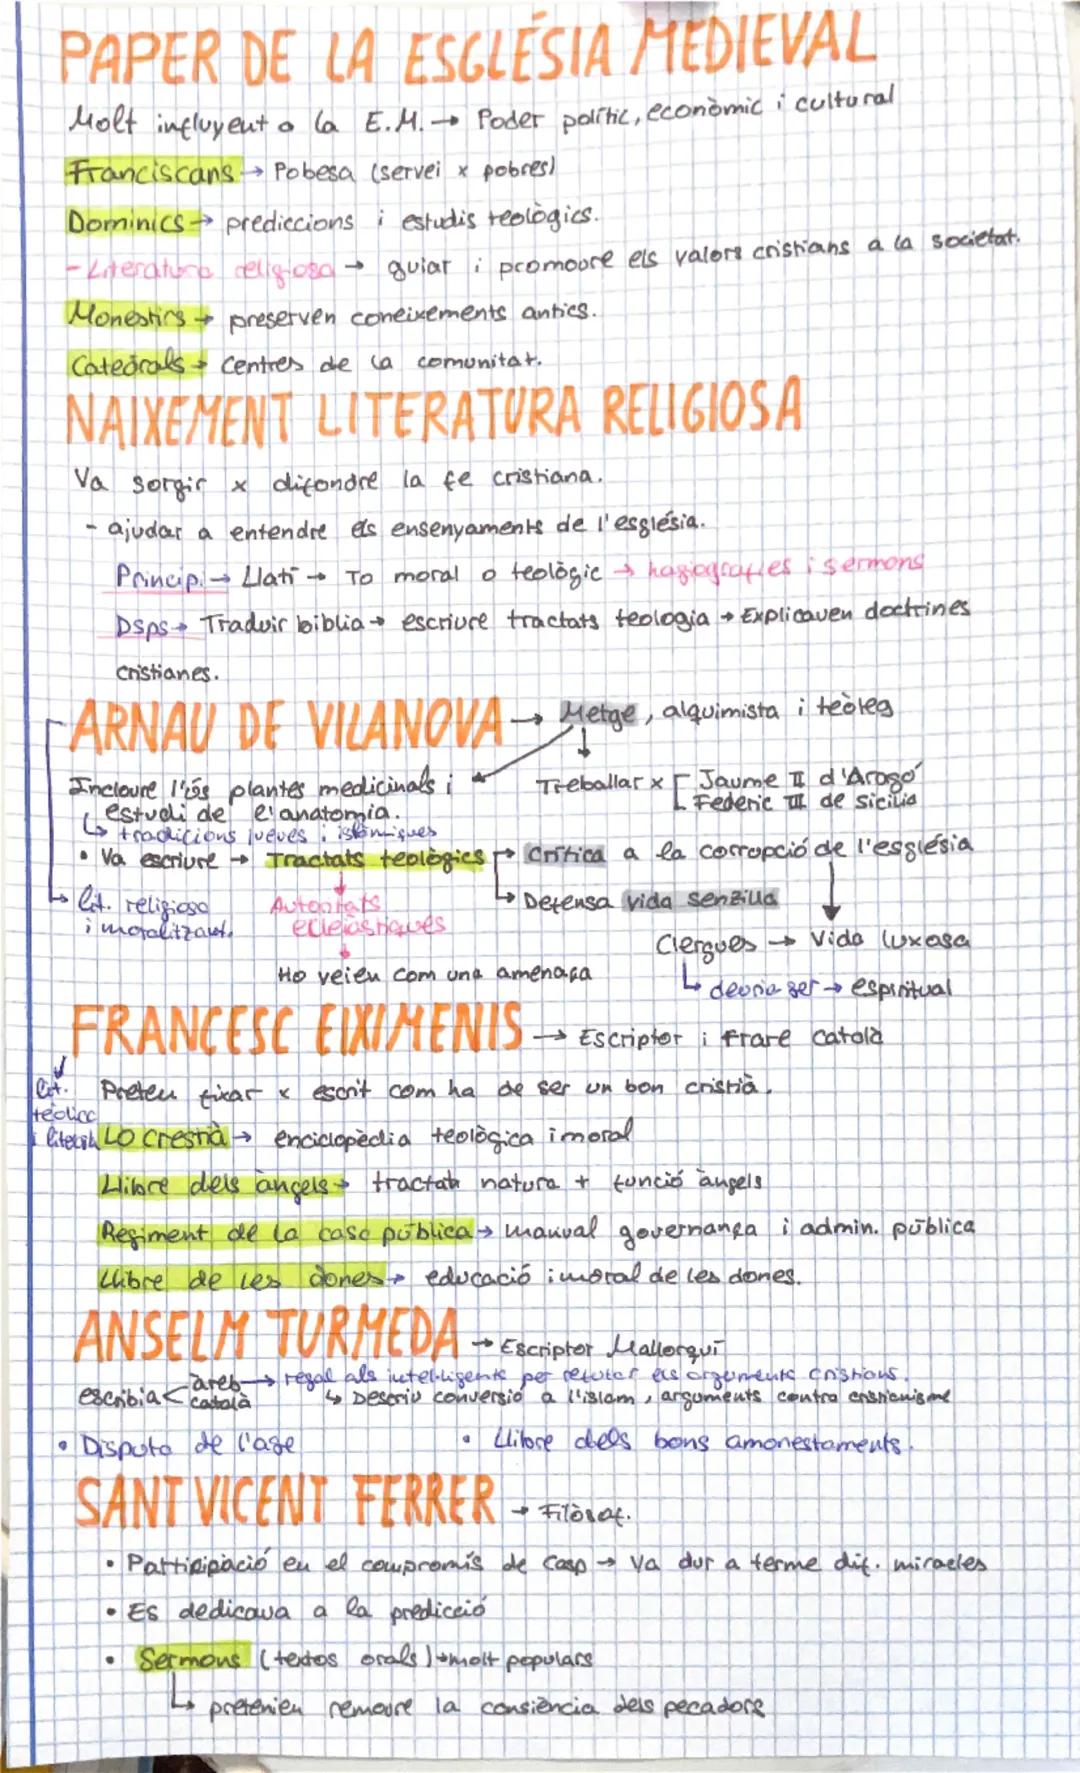 PAPER DE LA ESGLÉSIA MEDIEVAL
Molt influyent a la E.M. → Poder polític, econòmic i cultural
Franciscans → Pobesa (servei x pobres)
Dominics → prediccions i estudis teològics.
- Literatura religiosa → guiar i promoure els valors cristians a la societat.
Monestirs → preserven coneixements antics.
Catedrals → Centres de la comunitat.
NAIXEMENT LITERATURA RELIGIOSA
Va sorgir x difondre la fe cristiana.
- ajudar a entendre els ensenyaments de l'església.
Principi → Llatí → To moral o teològic → hagiografies i sermons
Dsps → Traduir biblia → escriure tractats teologia → Explicaven doctrines
cristianes.
ARNAU DE VILANOVA → Metge, alquimista i teòleg
Incloure l'ús plantes medicinals i
estudi de l'anatomia.
↳ tradicions jueves i islàmiques
Treballar x [ Jaume II d'Aragó
Federic III de sicilia
• Va escriure → Tractats teològics → Crítica a la corrupció de l'església
↳ Defensa vida senzilla
↳ lit. religiosa
i moralitzant.
Autoritats
eclesiàstiques
Ho veien com una amenaça
Clergues → Vida luxosa
↳ devria ser → espiritual
FRANCESC EIXIMENIS → Escriptor i frare català
lit.
Preten fixar x escrit com ha de ser un bon cristià.
Lo Crestià → enciclopèdia teològica i moral
Llibre dels àngels → tractats natura + funció àngels
Regiment de la casa pública → manual governança i admin. pública
Llibre de les dones → educació i moral de les dones.
ANSELM TURMEDA → Escriptor Mallorquí
escribia < àreb → regal als intel·ligents per refutar els arguments cristians.
català
↳ Descriu conversió a l'islam, arguments contra cristianisme
• Disputa de l'ase
• Llibre dels bons amonestaments.
SANT VICENT FERRER → Filòsof.
• Participació en el compromís de Casp → Va dur a terme dif. miracles
• Es dedicava a la predicció
• Sermons (textos orals) → molt populars
↳ pretenien remoure la consiència dels pecadors